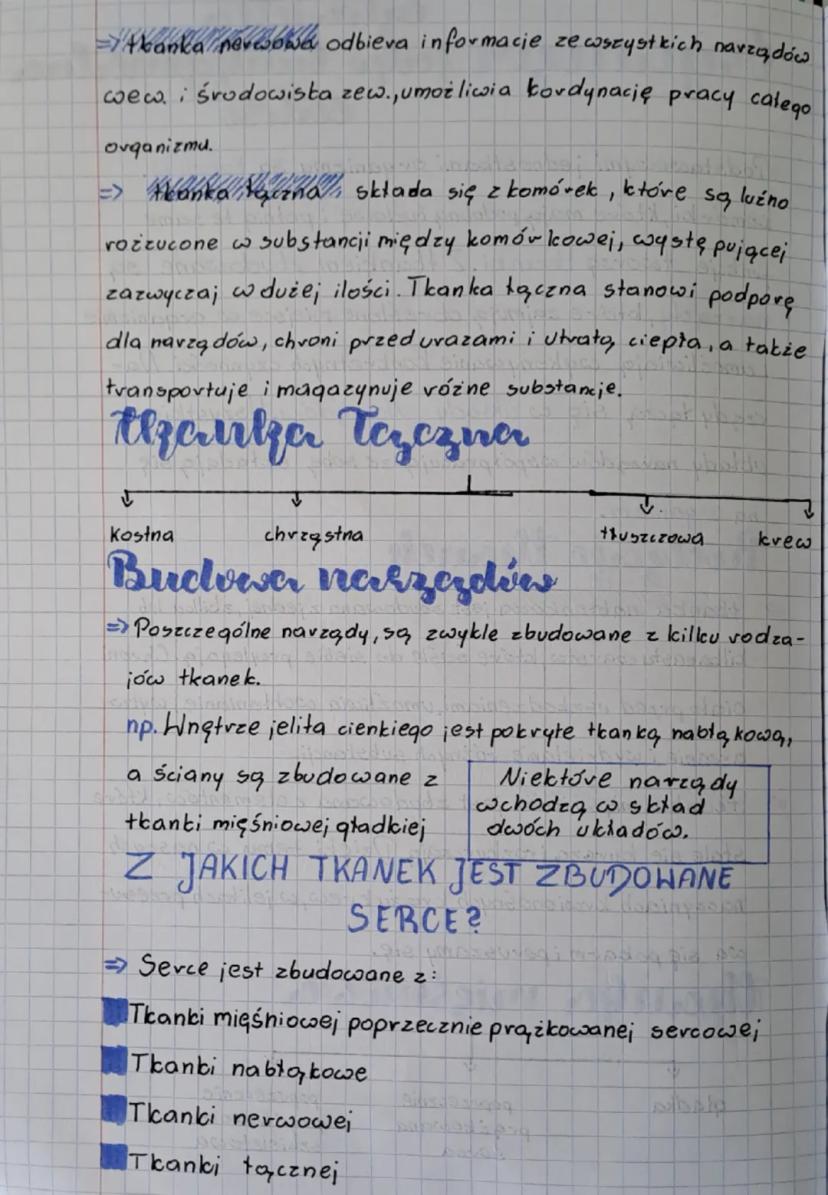 ⇒ tkanka nerwowa odbiera informacje ze wszystkich narządów
wew. i środowiska zew., umożliwia kordynację pracy całego
organizmu.
⇒ tkanka łączna składa się z komórek, które są luźno
rozrzucone w substancji między komórkowej, występującej
zazwyczaj w dużej ilości. Tkanka łączna stanowi podporę
dla narządów, chroni przed urazami i utratą ciepła, a także
transportuje i magazynuje różne substancje.
Tkanka Łączna
kostna chrząstna tłuszczowa krew
Budowa narządów
⇒ Poszczególne narządy, są zwykle zbudowane z kilku rodza-
jów tkanek.
np. Wnętrze jelita cienkiego jest pokryte tkanką nabłąkową,
a ściany są zbudowane z
tkanki mięśniowej gładkiej
Niektóre narządy
wchodzą w skład
dwóch układów.
Z JAKICH TKANEK JEST ZBUDOWANE
SERCE?
⇒ Serce jest zbudowane z:
Tkanki mięśniowej poprzecznie prążkowanej sercowej
Tkanki nabłąkowe
Tkanki nerwowej
Tkanki łącznej